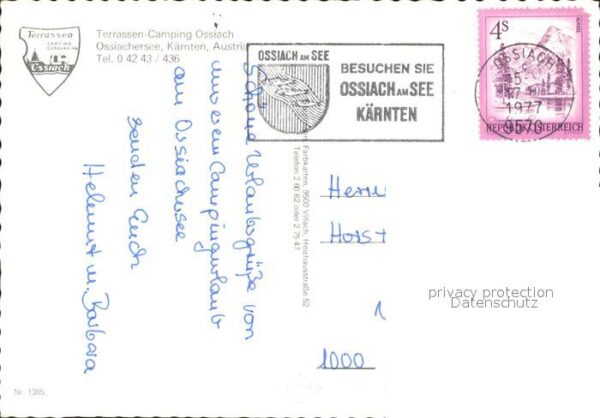 Terrassen
CAMPING
CARAVANING
Ossiach
Terrassen-Camping Ossiach
Ossiachersee, Kärnten, Austria
Tel. 0 42 43 / 436
OSSIACH AM SEE
BESUCHEN SIE
OSSIACH AM SEE
KÄRNTEN
4S
ALMSEE
REPUBLIK ÖSTERREICH
OSSIACH
15
17
1977
9570
Schöne Urlaubsgrüße von
unserem Campingurlaub
am Ossiachersee
senden Euch
Helmut u. Barbara
Farbkarten, 9500 Villach, Herzhausstraße 52
Telefon 2 80 62 oder 2 75 47
Herrn
Horst
1
1000
privacy protection
Datenschutz
Nr. 1385